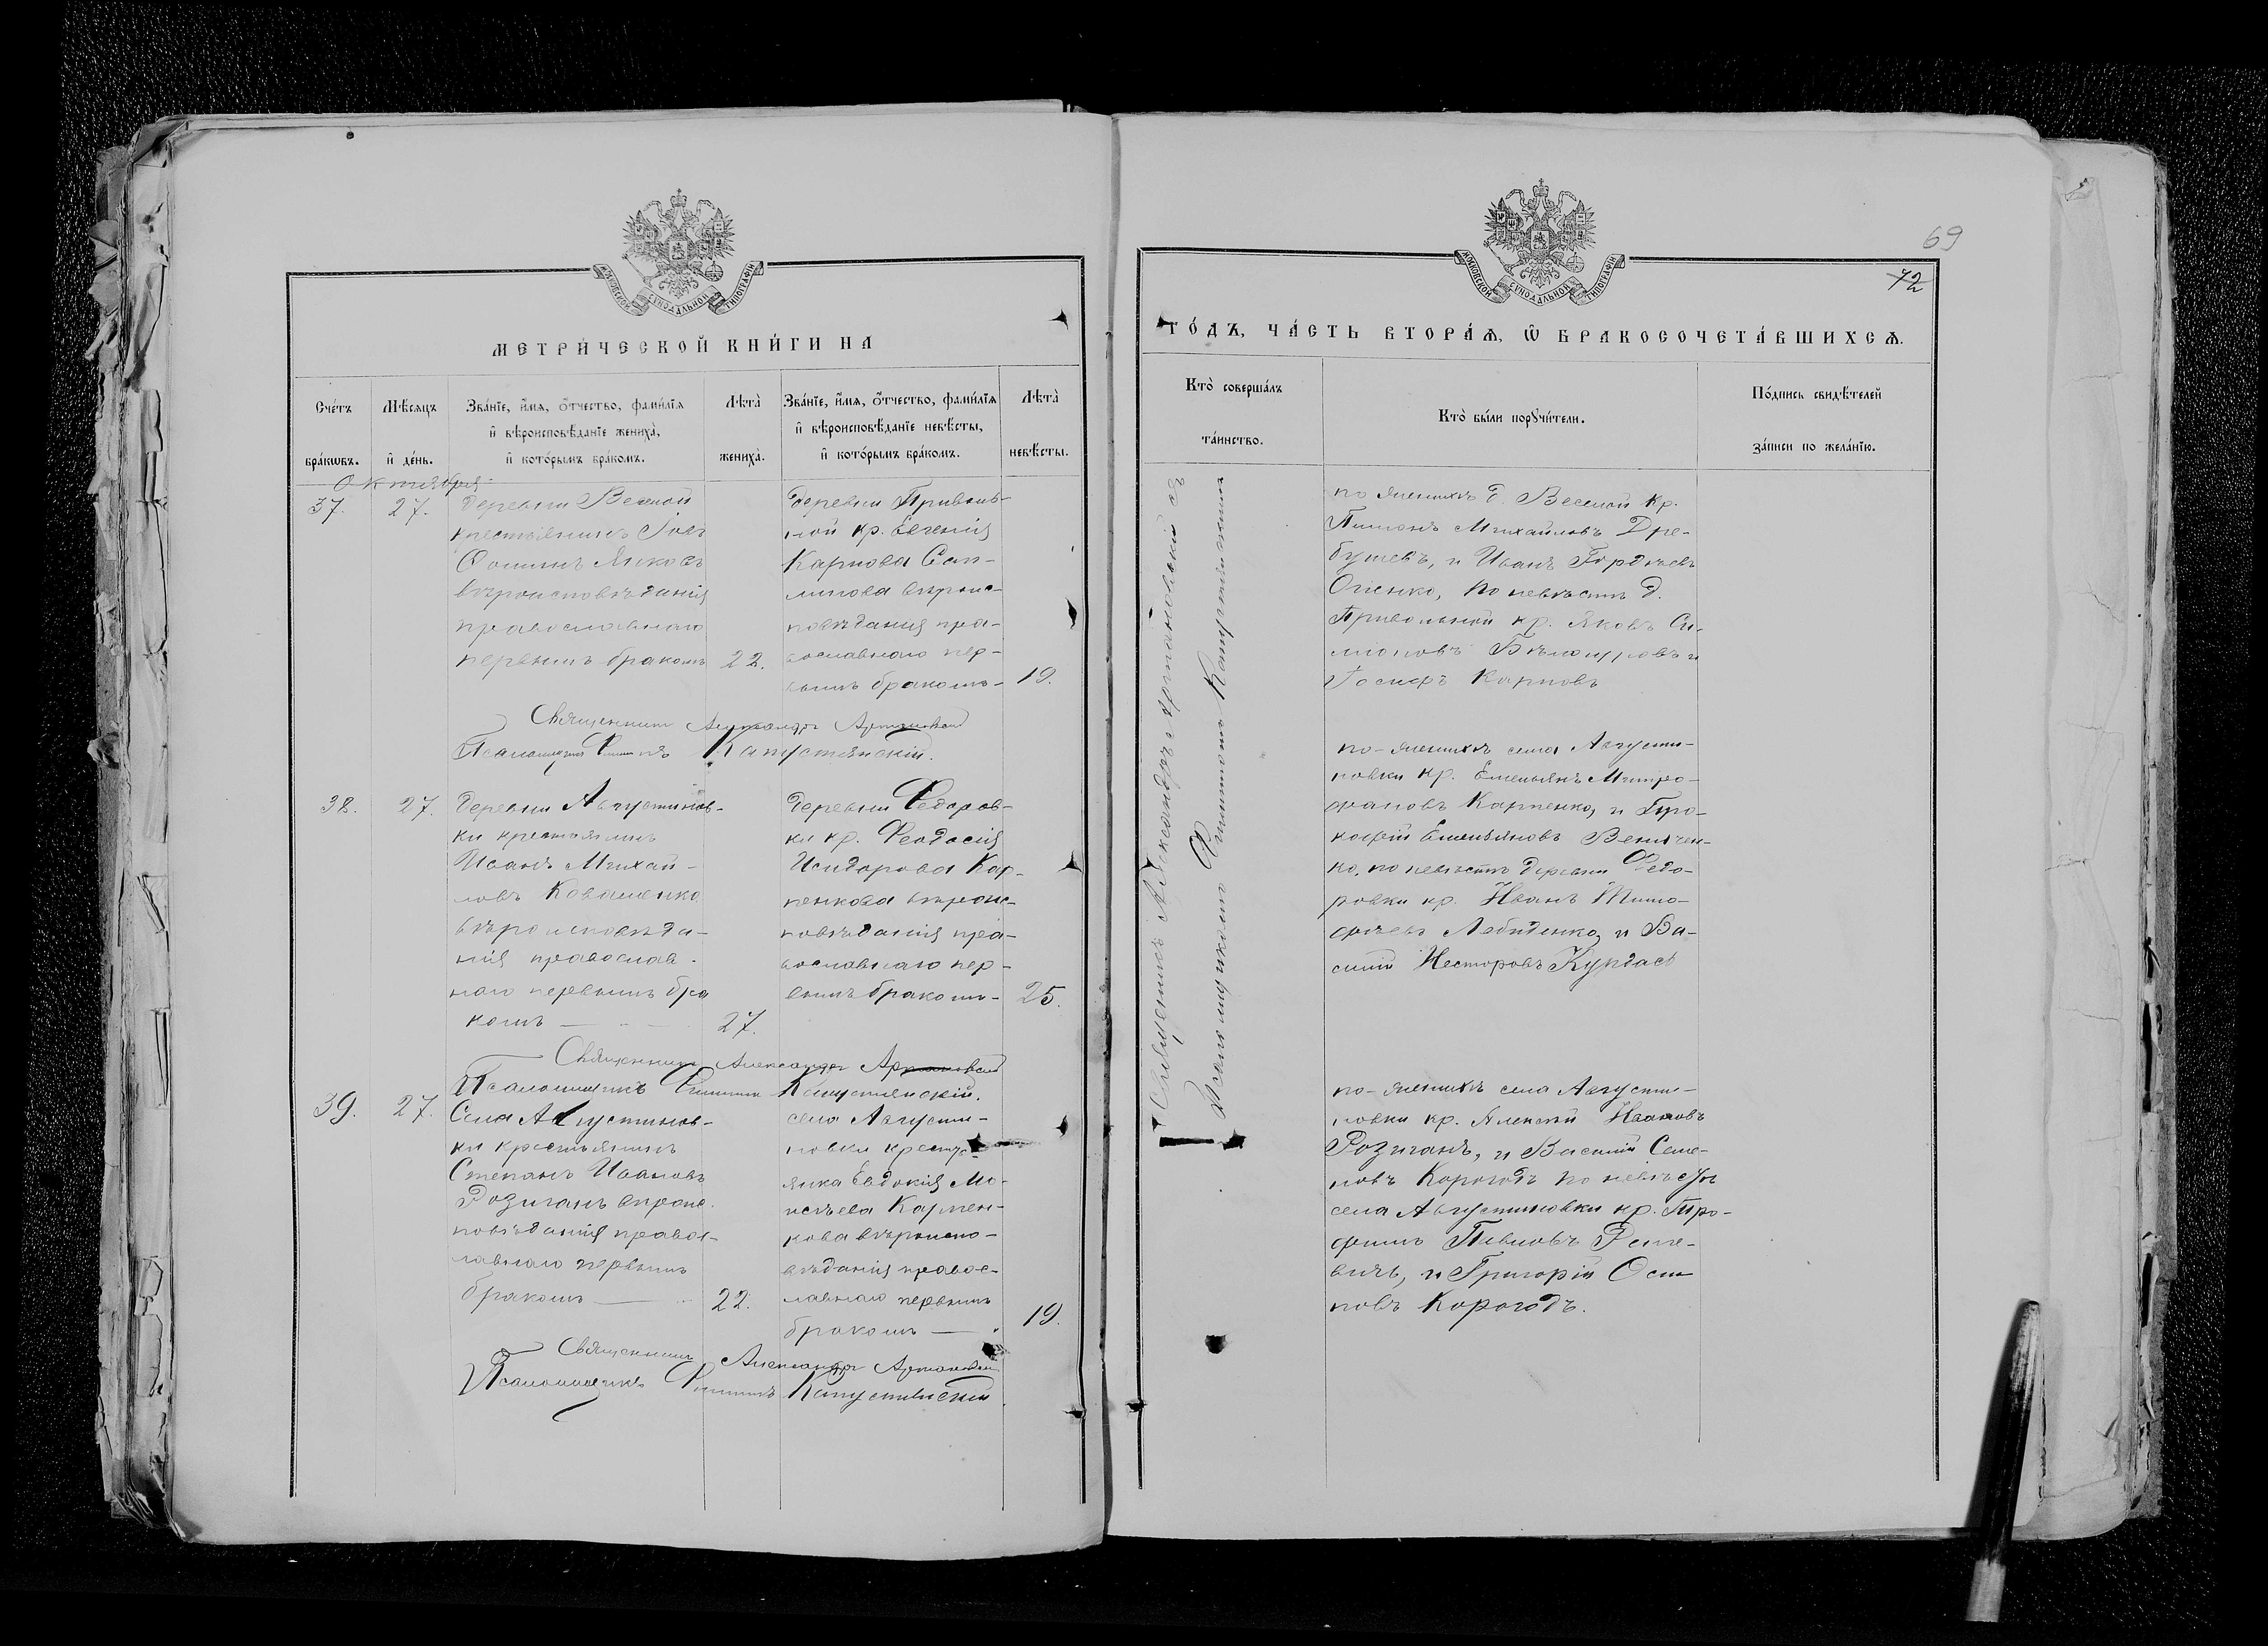 МОСКОВСКОЙ СУНОДАЛЬНОЙ ТИПОГРАФІИ
МЕТРИ́ЧЕСКОЙ КНИ́ГИ НА
Сче́тъ бра́кѡвъ.
Мѣ́сяцъ и҆ де́нь.
Зва́нїе, и҆́мя, о҆́тчество, фами́лїя
и҆ вѣроисповѣ́данїе жениха̀,
и҆ кото́рымъ бра́комъ.
Лѣта̀ жениха̀.
Зва́нїе, и҆́мя, о҆́тчество, фами́лїя
и҆ вѣроисповѣ́данїе невѣ́сты,
и҆ кото́рымъ бра́комъ.
Лѣта̀ невѣ́сты.
Октября
37.
27.
деревни Веселой
крестьянинъ Іовъ
Ѳоминъ
вѣроисповѣданія
православнаго
первымъ бракомъ
22.
деревни Приволь-
ной кр. Евгенія
Карпова
вѣроис-
повѣданія пра-
вославнаго пер-
вымъ бракомъ-
19.
Священникъ Александръ Артановскій
Псаломщикъ Филиппъ Капустянскій.
38.
27.
деревни Августинов-
ки крестьянинъ
Иванъ Михай-
ловъ Коваленко
вѣроисповѣда-
нія православ-
наго первымъ бра
комъ —
27.
деревни Федоров-
ки кр. Феодосія
Исидорова Кар-
пенкова вѣроис-
повѣданія пра-
вославнаго пер-
вымъ бракомъ-
25.
Священникъ Александръ Артановскій
Псаломщикъ Филиппъ Капустянскій.
39.
27.
Села Августинов-
ки крестьянинъ
Степанъ Ивановъ
Розиганъ вѣроис
повѣданія правос-
лавнаго первымъ
бракомъ —
22.
села Августи-
новки кресть-
янка Евдокія Мо-
исѣева Карпен-
кова вѣроиспо-
вѣданія правос-
лавнаго первымъ
бракомъ —
19.
Священникъ Александръ Артановскій
Псаломщикъ Филиппъ Капустянскій
69
МОСКОВСКОЙ СУНОДАЛЬНОЙ ТИПОГРАФІИ
72
ГО́ДЪ, ЧА́СТЬ ВТОРА́Ѧ, Ѡ҆ БРАКОСОЧЕТА́ВШИХСѦ.
Кто̀ соверша́лъ та́инство.
Кто̀ бы́ли порꙋчи́тели.
По́дпись свидѣ́телей
за́писи по жела́нїю.
Священникъ Александръ Артановскій съ
Псаломщикомъ Филиппомъ Капустянскимъ
по женихѣ д. Веселой кр.
Пименъ Михайловъ Дре-
бушевъ, и Иванъ Гордѣевъ
Огіенко, по невѣстѣ д.
Привольной кр. Яковъ Си-
моновъ и
Іосифъ Карповъ
по-женихѣ села Августи-
новки кр. Емельянъ Митро-
фановъ Карпенко, и Про-
кофій Емельяновъ Величен-
ко, по невѣстѣ деревни Федо-
ровки кр. Иванъ Тимо-
фѣевъ Лебиденко, и Ва-
силій Несторовъ Кургасъ
по-женихѣ села Августи-
новки кр. Алексѣй Ивановъ
Розиганъ, и Василій Семе-
новъ Корогодъ по невѣстѣ
села Августиновки кр. Тро-
фимъ Павловъ
и Григорій Оси
повъ Корогодъ.